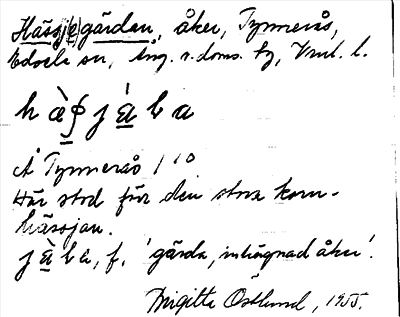 Hässj(e)gärdan, åker, Tynnerås,
Edsele sn, Ång. s. doms. by, Vnl. l.
Å Tynnerås 1/10
Här stod för den stora korn-
hässjan.
f. 'gärda, inhägnad åker'.
Birgitta Östlund, 1955.